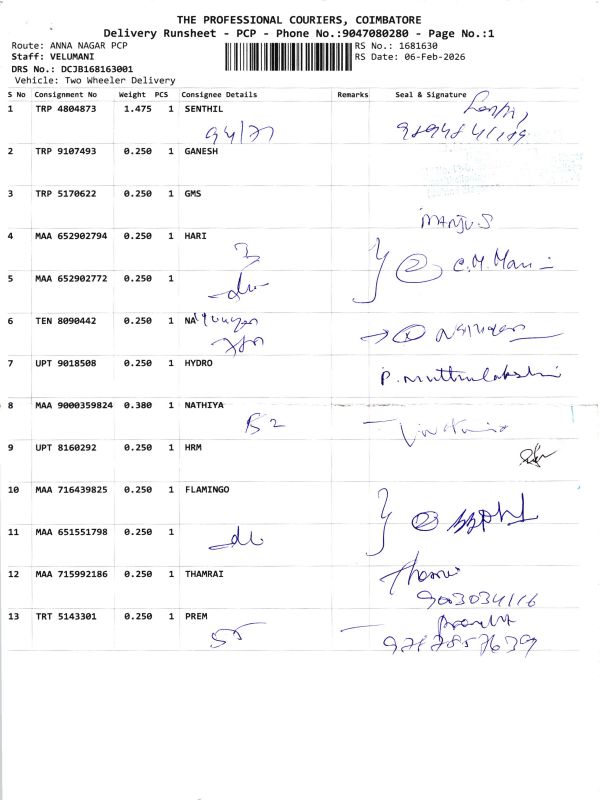 THE PROFESSIONAL COURIERS, COIMBATORE
Delivery Runsheet - PCP - Phone No.:9047080280 - Page No.:1
Route: ANNA NAGAR PCP
RS No.: 1681630
Staff: VELUMANI
RS Date: 06-Feb-2026
DRS No.: DCJB168163001
Vehicle: Two Wheeler Delivery
S No Consignment No Weight PCS Consignee Details Remarks Seal & Signature
1 TRP 4804873 1.475 1 SENTHIL
2 TRP 9107493 0.250 1 GANESH
3 TRP 5170622 0.250 1 GMS
MANJU.S
4 MAA 652902794 0.250 1 HARI
3
2 C.M. Mani
5 MAA 652902772 0.250 1
6 TEN 8090442 0.250 1
7 UPT 9018508 0.250 1 HYDRO
P. Muthulakshmi
8 MAA 9000359824 0.380 1 NATHIYA
B2
9 UPT 8160292 0.250 1 HRM
10 MAA 716439825 0.250 1 FLAMINGO
2
11 MAA 651551798 0.250 1
12 MAA 715992186 0.250 1 THAMRAI
9003034116
13 TRT 5143301 0.250 1 PREM
55